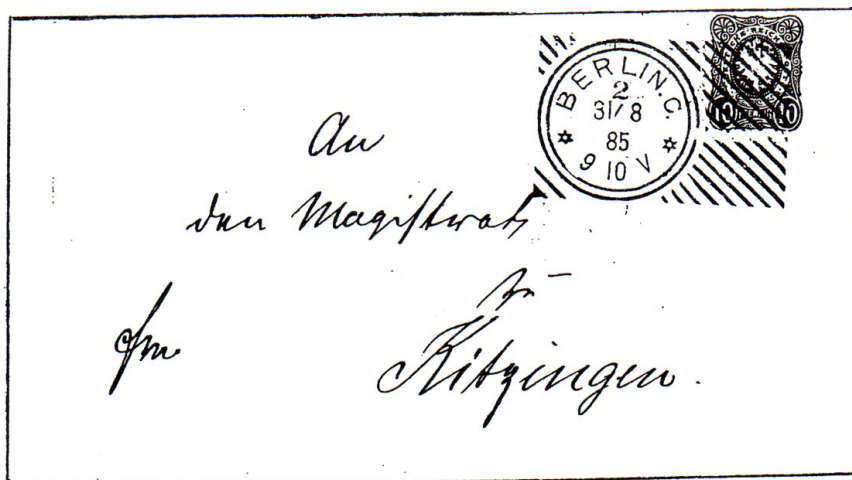 BERLIN.C.
2
31/8
85
9 10 V
REICH
10 10
An
den Magistrat
zu
Kitzingen.